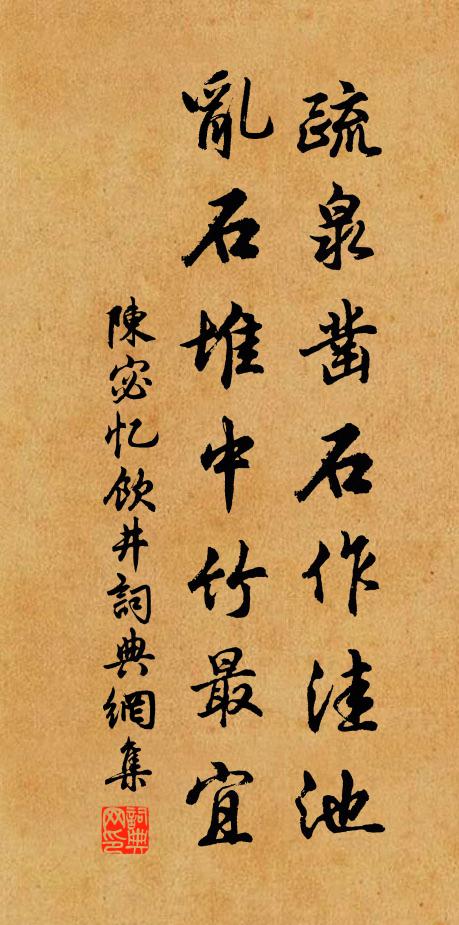 疏泉凿石作洼池
亂石堆中竹最宜
陳宓忆飲井詞典網集
詞典网印